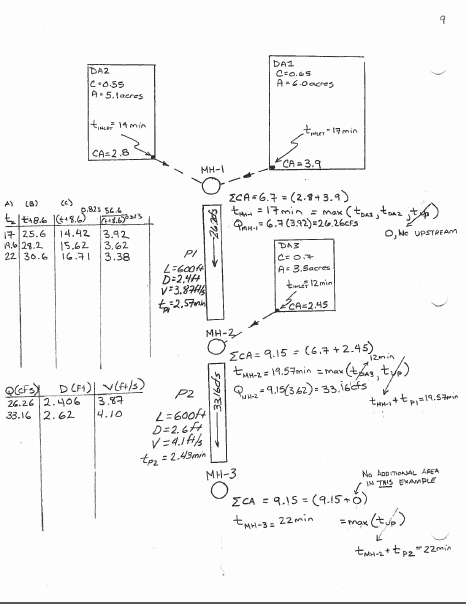 9
DA2
C=0.55
A=5.1acres
t INLET = 14min
CA=2.8
DA1
C=0.65
A=6.0acres
t INLET = 17min
CA=3.9
MH-1
ΣCA = 6.7 = (2.8+3.9)
t MH-1 = 17min = max(t DA1, t DA2, t UP)
Q MH-1 = 6.7(3.92)=26.26cfs
0, No UPSTREAM
A) (B) (C)
t t+8.6 (t+8.6)^0.825 56.6/(t+8.6)^0.825
17 25.6 14.42 3.92
19.6 28.2 15.62 3.62
22 30.6 16.71 3.38
P1
L=600ft
D=2.4ft
V=3.87ft/s
t P1 = 2.57min
26.26
DA3
C=0.7
A=3.5acres
t INLET = 12min
CA=2.45
MH-2
ΣCA = 9.15 = (6.7+2.45)
12min
t MH-2 = 19.57min = max(t DA3, t UP)
Q MH-2 = 9.15(3.62)=33.16cfs
t MH-1 + t P1 = 19.57min
Q(cfs) D(ft) V(ft/s)
26.26 2.406 3.87
33.16 2.62 4.10
P2
L=600ft
D=2.6ft
V=4.1ft/s
t P2 = 2.43min
33.16cfs
MH-3
No ADDITIONAL AREA
IN THIS EXAMPLE
ΣCA = 9.15 = (9.15+0)
t MH-3 = 22min = max(t UP)
t MH-2 + t P2 = 22min